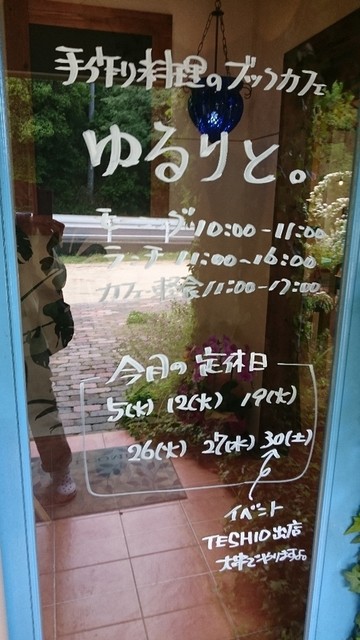 手作り料理のブックカフェ
ゆるりと。
モーニング 10:00~11:00
ランチ 11:00~16:00
カフェ軽食 11:00~17:00
今月の定休日
5(火) 12(火) 19(火)
26(火) 27(水) 30(土)
イベント
TESHIO出店